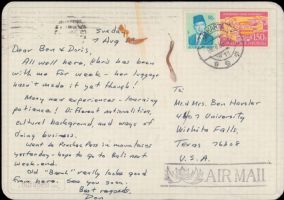 Sunday
7 Aug
Dear Ben & Doris,
All well here, Chris has been
with me for week - her luggage
hasn't made it yet though!
Many new experiences - learning
patience! Different nationalities,
cultural background, and ways of
doing business.
Went to Puncak Pass in mountains
yesterday - hope to go to Bali next
week-end.
Old "Bank" really looks good
from here. See you soon.
Best regards,
Don
To:
Mr & Mrs. Ben
University
Wichita Falls,
Texas 76308
U.S.A.
AIR MAIL
150